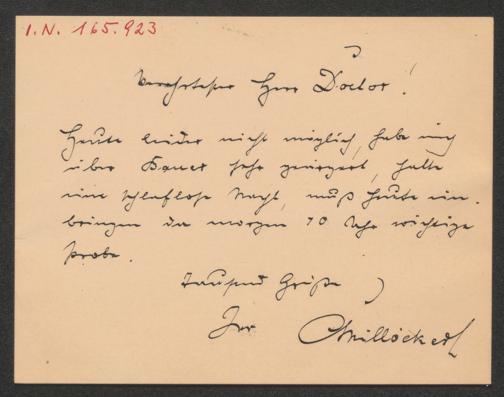 I.N. 165.923
Verehrtester Herr Doctor!
Heute leider nicht möglich, habe mich
über Bauer sehr geärgert, hatte
eine schlaflose Nacht, muß heute ein-
bringen da morgen 10 Uhr wichtige
Probe.
Tausend Grüße
Ihr CMillöcker